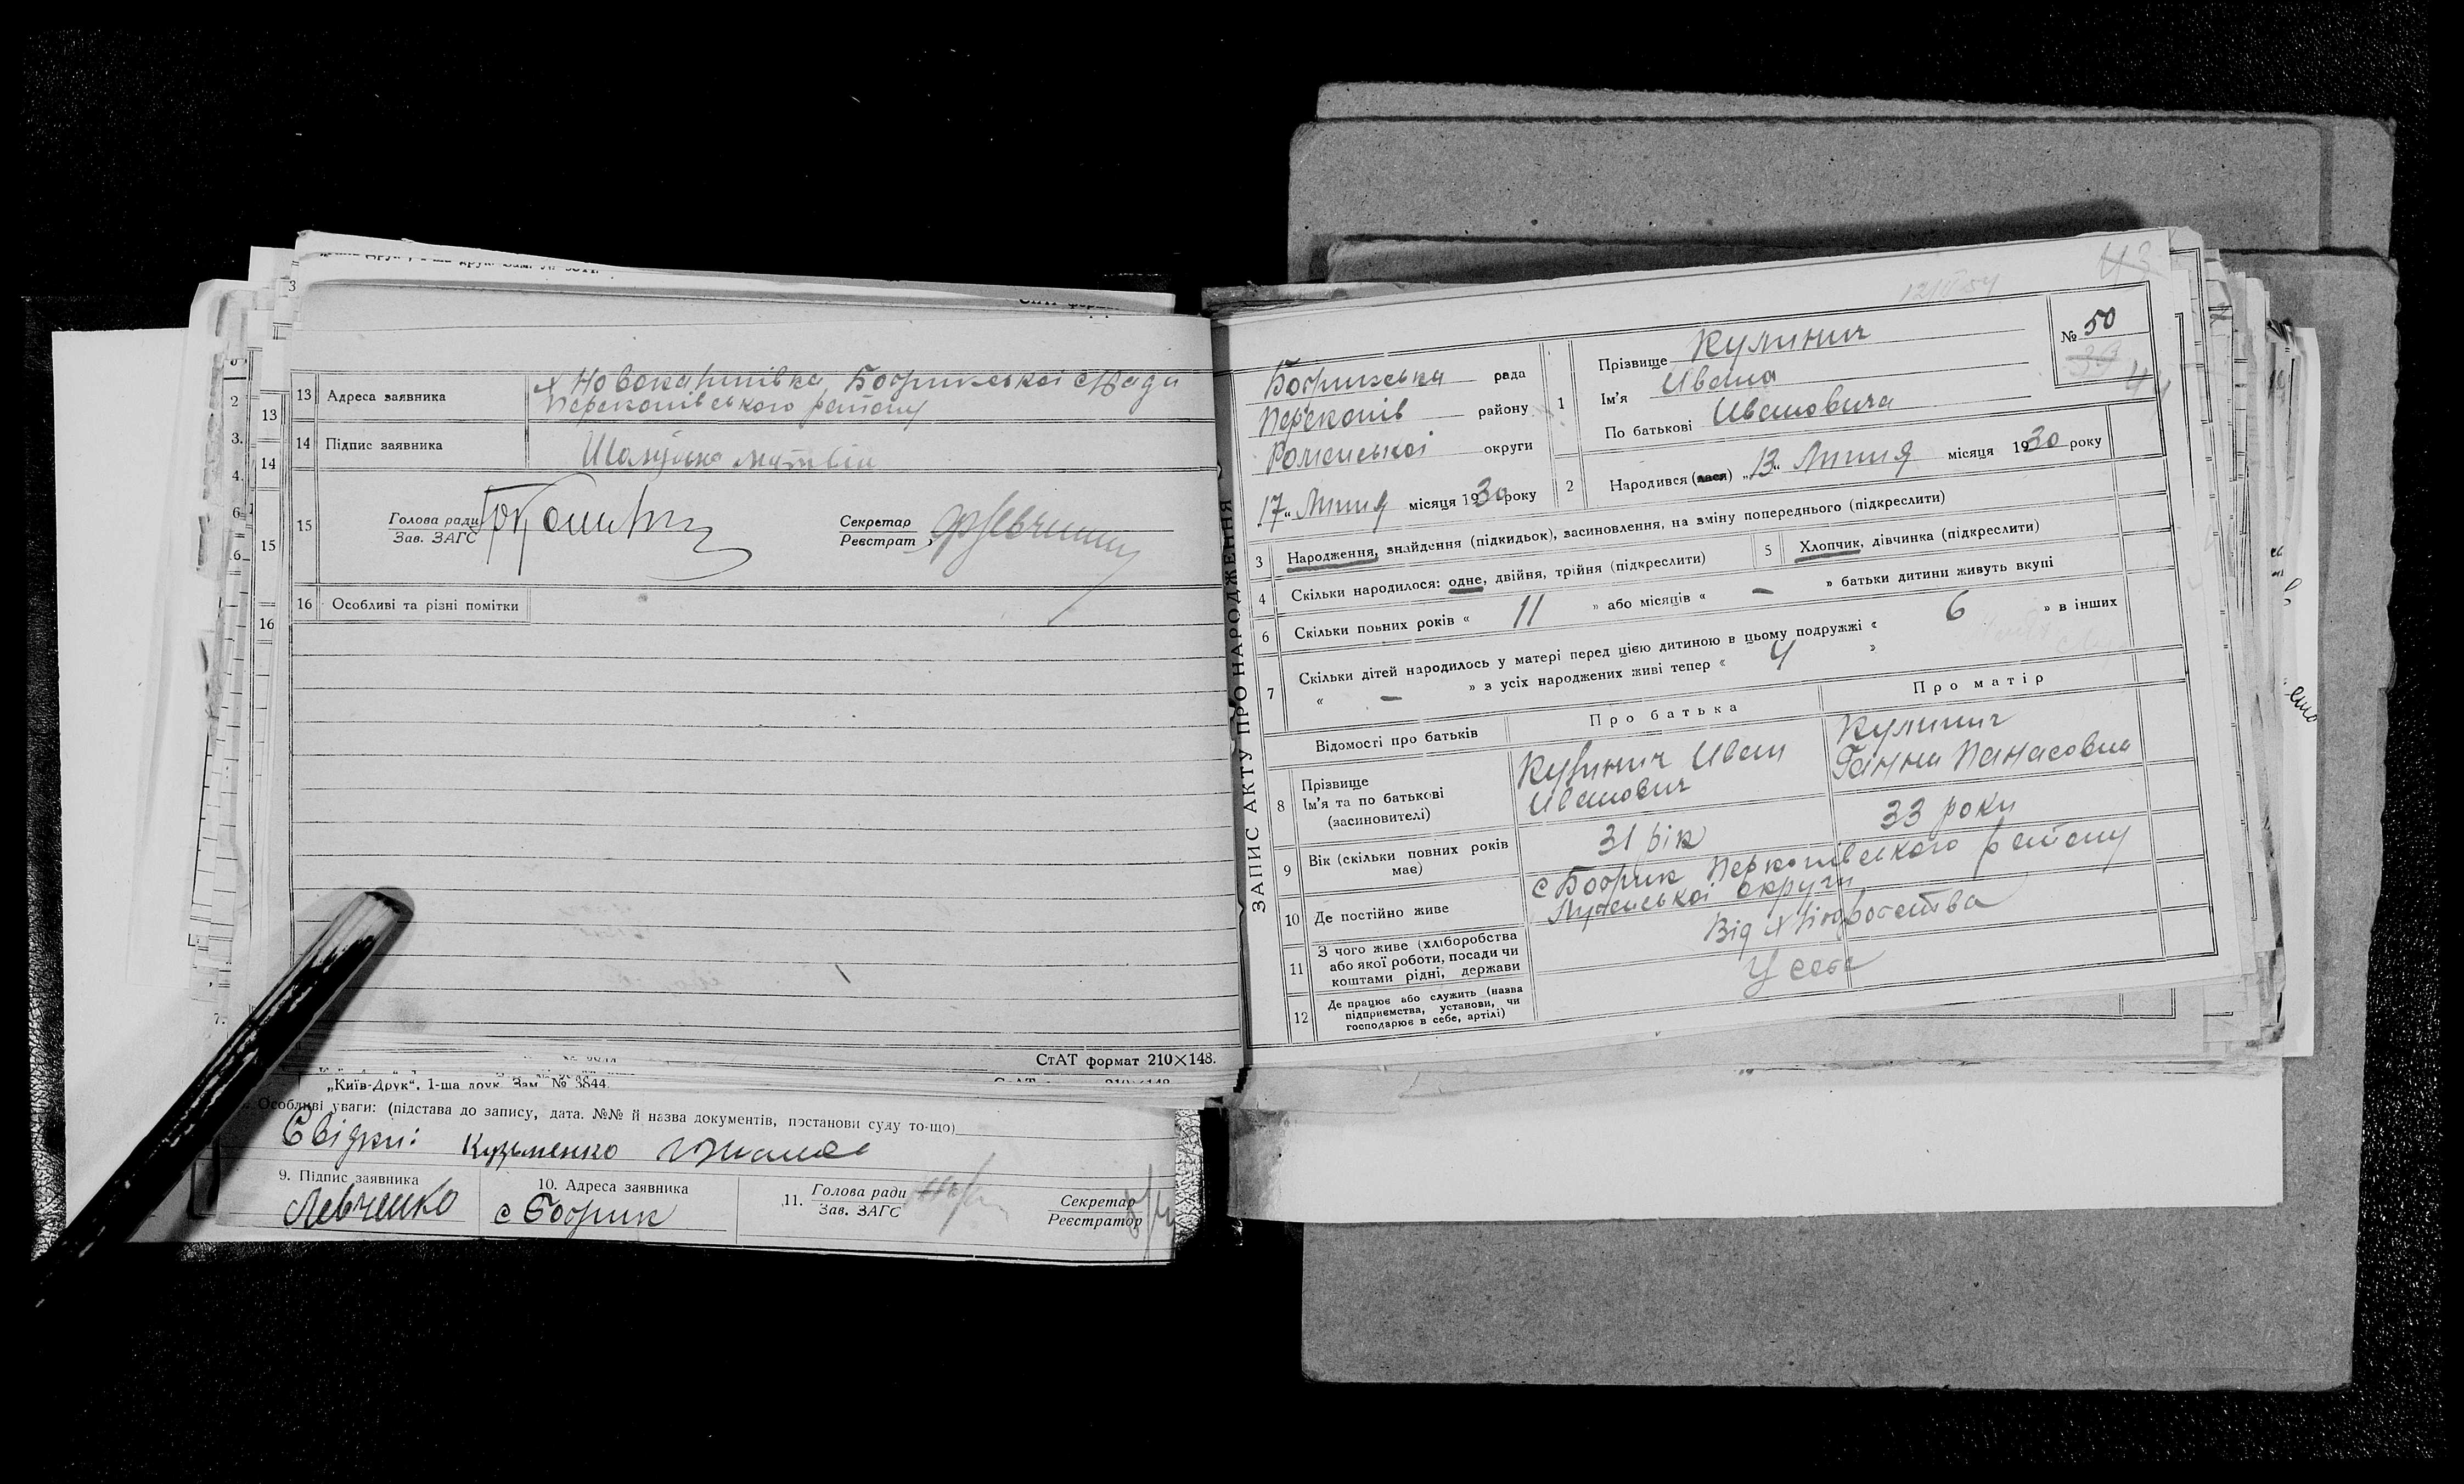 13 Адреса заявника
х Новокарпівка, Бобрикської с/ради
Перекопівського району
14 Підпис заявника
15 Голова ради
Зав. ЗАГС
Секретар
Реєстрат
16 Особливі та різні помітки
СтАТ формат 210×148.
„Київ-Друк“, 1-ша друк. Зам. № 3844.
Особливі уваги: (підстава до запису, дата. №№ й назва документів, постанови суду то-що)
Свідки: Кузьменко
9. Підпис заявника
Левченко
10. Адреса заявника
с Бобрик
11. Голова ради
Зав. ЗАГС
Секретар
Реєстратор
43
ЗАПИС АКТУ ПРО НАРОДЖЕННЯ
Бобрикська рада
Перекопів району
Роменської округи
„17“ Липня місяця 1930 року
1 Прізвище Кулинич
Ім'я Ивана
По батькові Ивановича
№ 50
39
2 Народився (лася) „13“ Липня місяця 1930 року
3 Народження, знайдення (підкидьок), засиновлення, на зміну попереднього (підкреслити)
4 Скільки народилося: одне, двійня, трійня (підкреслити)
5 Хлопчик, дівчинка (підкреслити)
6 Скільки повних років « 11 » або місяців « — » батьки дитини живуть вкупі
7 Скільки дітей народилось у матері перед цією дитиною в цьому подружжі « 6 » в інших
« — » з усіх народжених живі тепер « 4 »
Відомості про батьків
Про батька
Про матір
8 Прізвище
Ім'я та по батькові
(засиновителі)
Кулинич Иван
Иванович
Кулинич
Ганна Панасовна
9 Вік (скільки повних років
має)
31 рік
33 роки
10 Де постійно живе
с Бобрик Перкопівського району
округи
11 З чого живе (хліборобства
або якої роботи, посади чи
коштами рідні, держави
Від хліборобства
12 Де працює або служить (назва
підприємства, установи, чи
господарює в себе, артілі)
У себе